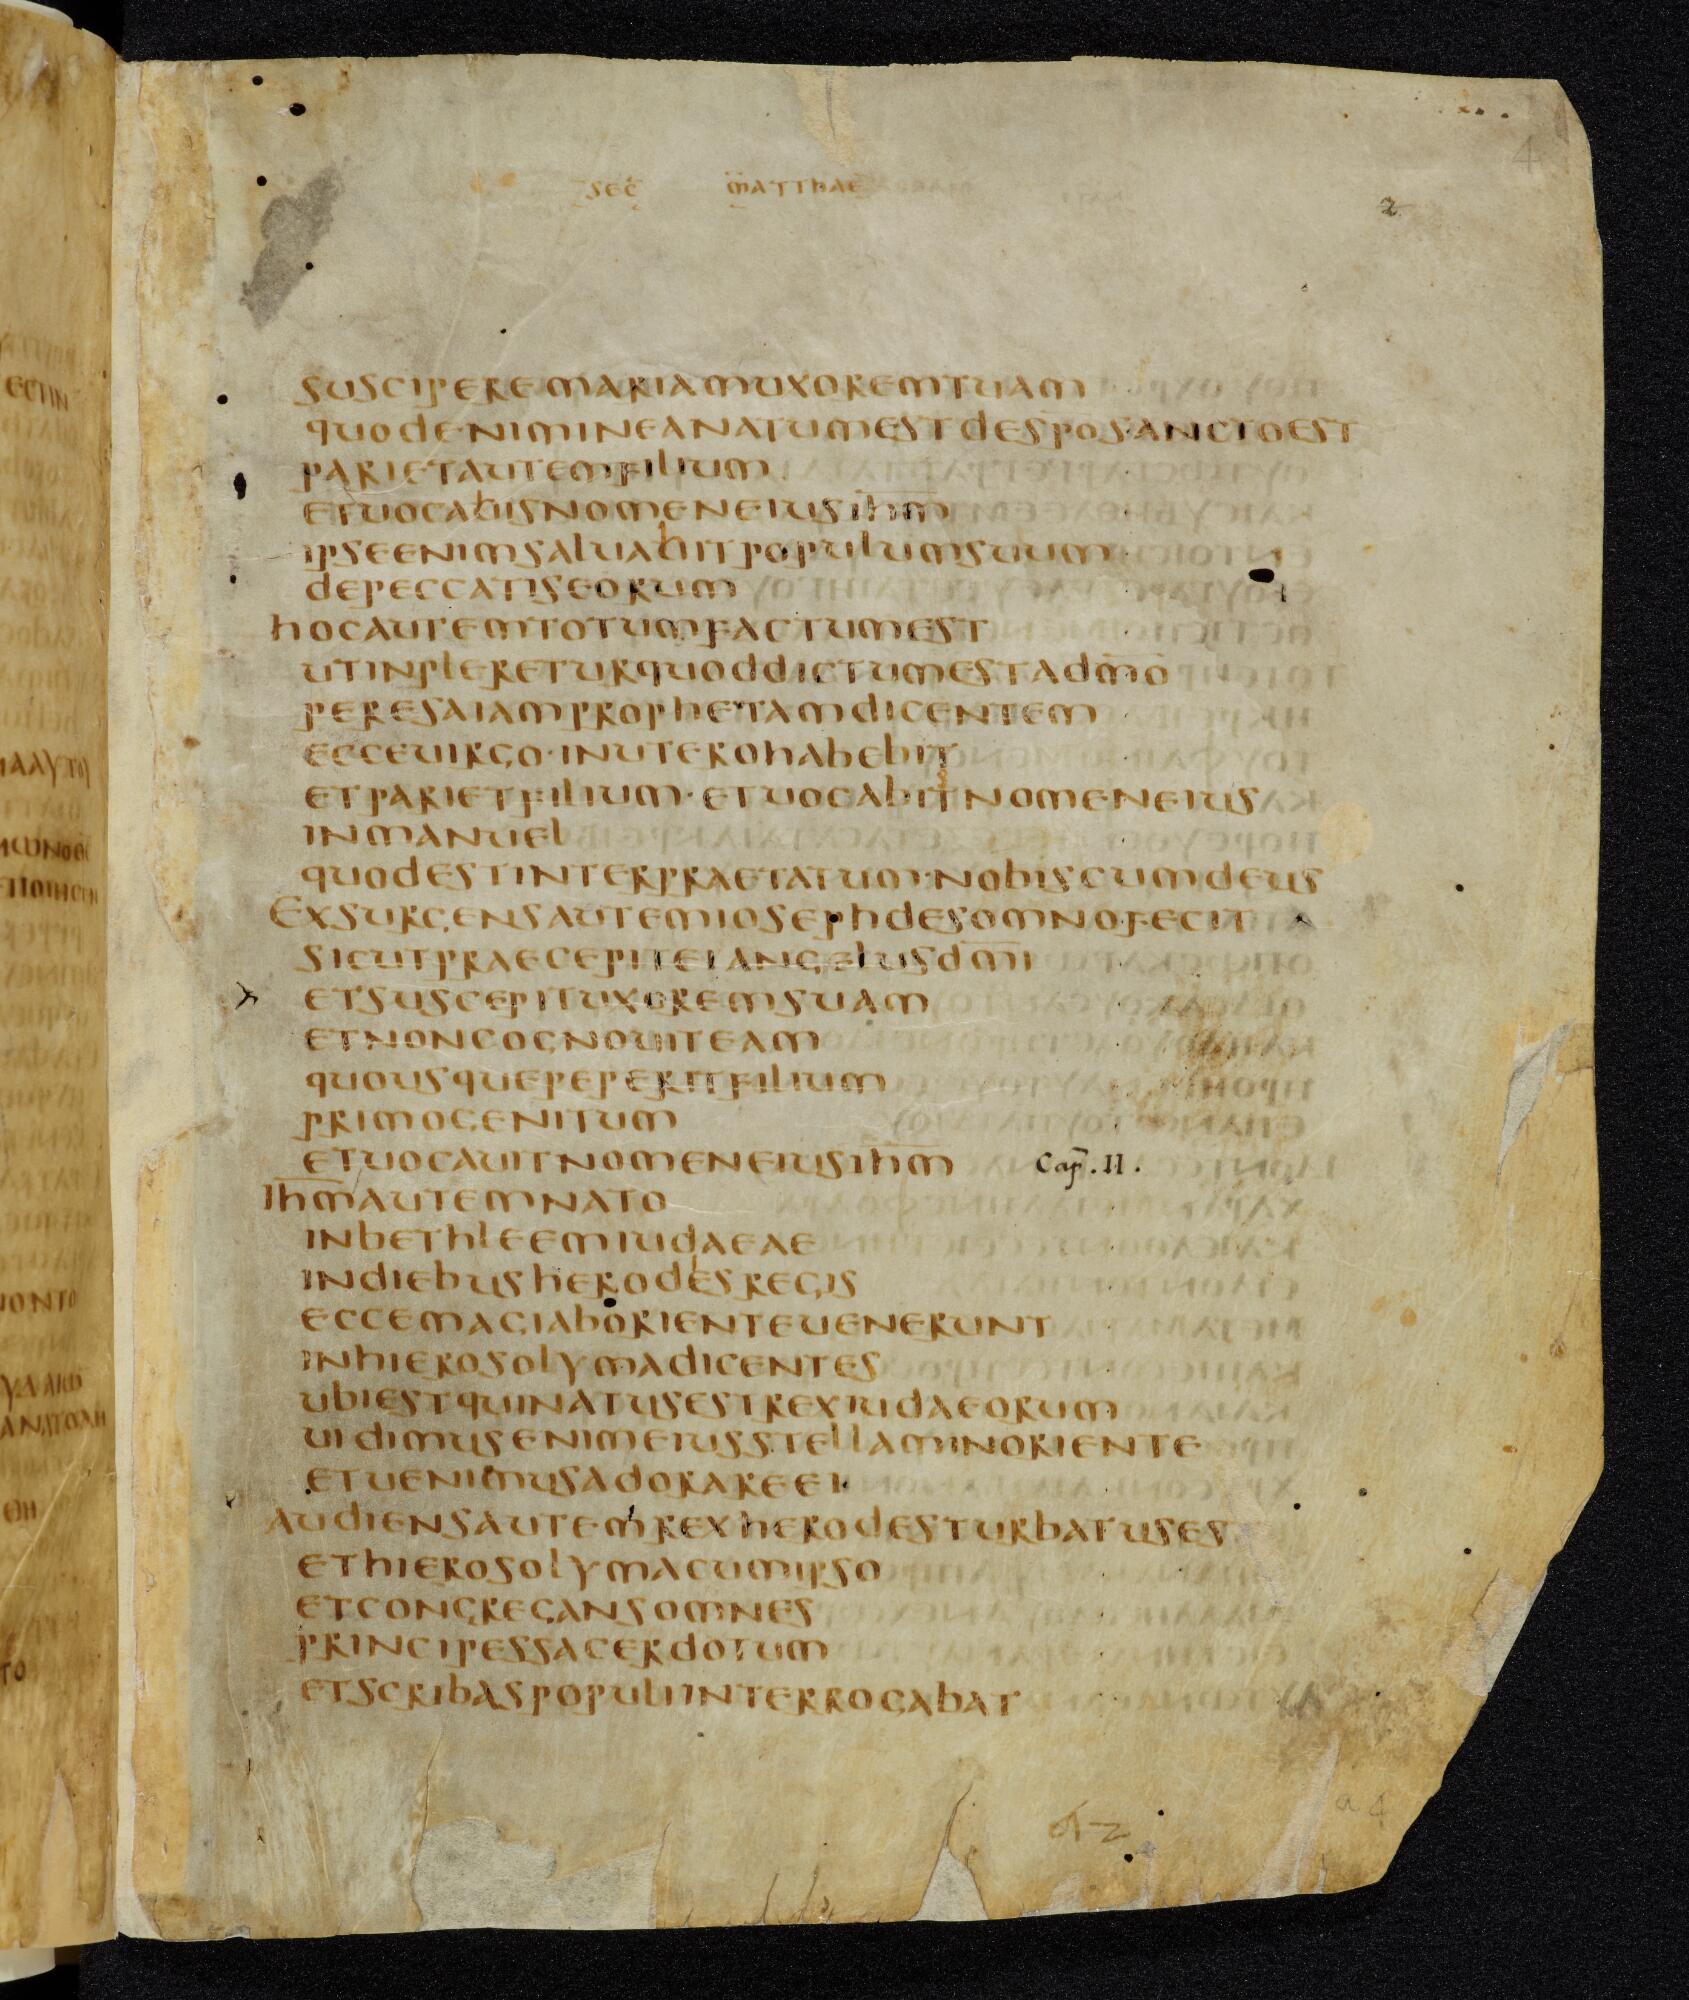 4
SEC MATTHAE
2
SUSCIPEREMARIAMUXOREMTUAM
QUODENIMINEANATUMESTDESPOSANCTOEST
PARIETAUTEMFILIUM
ETUOCABISNOMENEIUSIHM
IPSEENIMSALUABITPOPULUMSUUM
DEPECCATISEORUM
HOCAUTEMTOTUMFACTUMEST
UTINPLERETURQUODDICTUMESTADMO
PERESAIAMPROPHETAMDICENTEM
ECCEUIRGO·INUTEROHABEBIT
ETPARIETFILIUM·ETUOCABITNOMENEIUS
INMANUEL
QUODESTINTERPRAETATUM·NOBISCUMDEUS
EXSURGENSAUTEMIOSEPHDESOMNO·FECIT
SICUTPRAECEPITEIANGELUSDMI
ETSUSCEPITUXOREMSUAM
ETNONCOGNOUITEAM
QUOUSQUEPEPERITFILIUM
PRIMOGENITUM
ETUOCAUITNOMENEIUSIHM Cap.II.
IHMAUTEMNATO
INBETHLEEMIUDAEAE
INDIEBUSHERODESREGIS
ECCEMAGIABORIENTEUENERUNT
INHIEROSOLYMADICENTES
UBIESTQUINATUSESTREXIUDAEORUM
UIDIMUSENIMEIUSSTELLAMINORIENTE
ETUENIMUSADORAREEI
AUDIENSAUTEMREXHERODESTURBATUSES
ETHIEROSOLYMACUMIPSO
ETCONGREGANSOMNES
PRINCIPESSACERDOTUM
ETSCRIBASPOPULIINTERROGABAT
a4